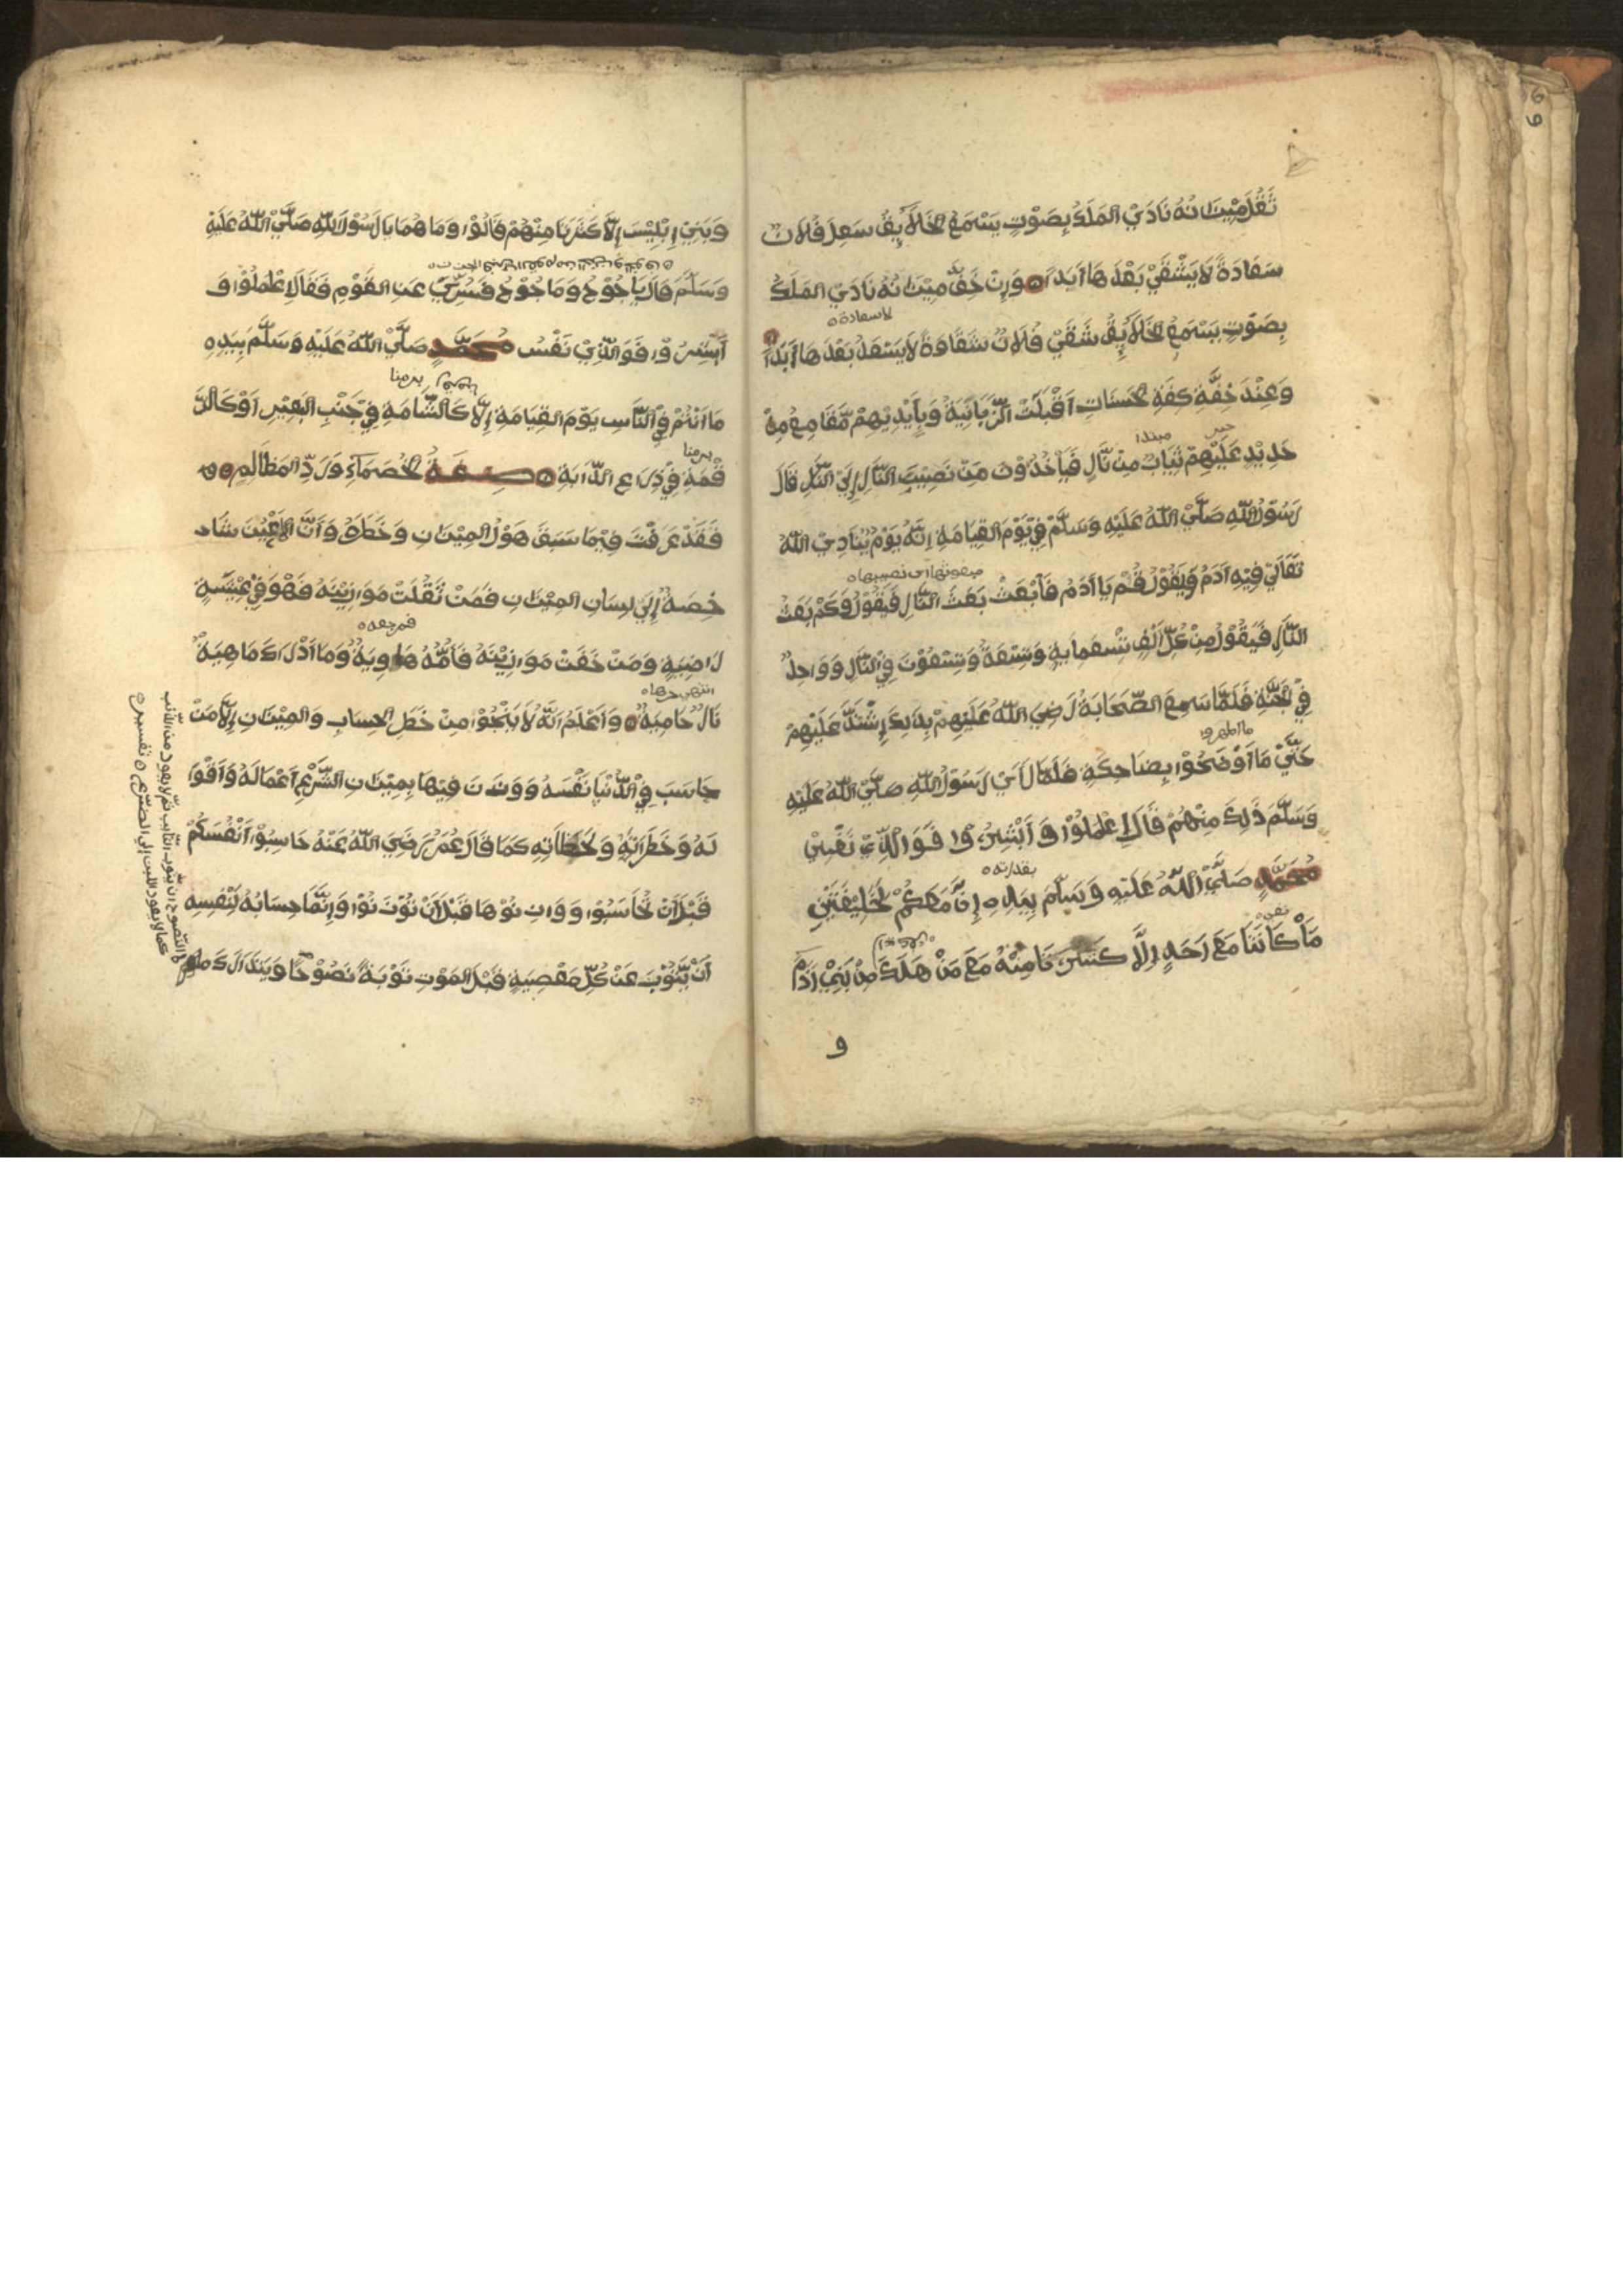 ثَقُلَ مِيْزَانُهُ نَادَيَ الْمَلَكُ بِصَوْتٍ يَسْمَعُ الْخَلَايِقُ سَعِدَ فُلَانٌ
سَعَادَةً لَا يَشْقَيْ بَعْدَهَا اَبَدًا وَإِنْ خَفَّ مِيْزَانُهُ نَادَيَ الْمَلَكُ
لاسعادة
بِصَوْتٍ يَسْمَعُ الْخَلَايِقُ شَقَيْ فُلَانٌ شَقَاوَةً لَا يَسْعَدُ بَعْدَهَا اَبَدًا
وَعِنْدَ خِفَّةِ كِفَّةِ الْحَسَنَاتِ اَقْبَلَتْ الزَّبَانِيَةُ وَبِأَيْدِيْهِمْ مَّقَامِعُ مِنْ
خبر مبتدا
حَدِيْدٍ عَلَيْهِمْ ثِيَابٌ مِنْ نَّارٍ فَيَأْخُذُوْنَ مَنْ نَصِيْبَ النَّارِ إِلَيَ النَّارِ قَالَ
رَسُوْلُ اللهِ صَلَّيْ اللهُ عَلَيْهِ وَسَلَّمْ فِيْ يَوْمِ الْقِيَامَةِ اِنَّهُ يَوْمٌ يُنَادِيْ اللهُ
تَعَالَيْ فِيْهِ اَدَمَ وَيَقُوْلُ قُمْ يَا اَدَمُ فَابْعَثْ بَعَثَ النَّارِ فَيَقُوْلُ وَكَمْ بَعَثُ
النَّارِ فَيَقُوْلُ مِنْ كُلِّ اَلْفٍ تِسْعُمِايَةٍ وَتِسْعَةٌ وَتِسْعُوْنَ فِيْ النَّارِ وَوَاحِدٌ
فِيْ الْجَنَّةِ فَلَمَّا سَمِعَ الصَّحَابَةُ رَضِيَ اللهُ عَلَيْهِمْ بِذَلِكَ اِشْتَدَّ عَلَيْهِمْ
حَتَّيْ مَا اَوْضَحُوْا بِضَاحِكَةٍ فَلَمَّا رَاَيْ رَسُوْلُ اللهِ صَلَّيْ اللهُ عَلَيْهِ
وَسَلَّمَ ذَلِكَ مِنْهُمْ قَالَ اِعْمَلُوْا وَاَبْشِرُوْا فَوَالَّذِيْ نَفْسِ
بقدرته
مُحَمَّدٍ صَلَّيْ اللهُ عَلَيْهِ وَسَلَّمَ بِيَدِهِ اِنَّ مَعَكُمْ لَخَلِيْقَتَيْنِ
نفي
مَاْ كَانَتَا مَعَ اَحَدٍ اِلَّا كَثَّرَتَا مِنْهُ مَعَ مَنْ هَلَكَ مِنْ بَنِيْ اَدَمْ
و
وَبَنِيْ اِبْلِيْسَ اِلَّا كَثَّرَتَا مِنْهُمْ قَالُوْا وَمَا هُمَا يَا رَسُوْلَ اللهِ صَلَّيْ اللهُ عَلَيْهِ
وَسَلَّمْ قَالَ يَاجُوْجُ وَمَاجُوْجُ فَسُرِّيَ عَنِ الْقَوْمِ فَقَالَ اِعْمَلُوْا وَ
اَبْشِرُوْا فَوَالَّذِيْ نَفْسُ مُحَمَّدٍ صَلَّيْ اللهُ عَلَيْهِ وَسَلَّمَ بِيَدِهِ
مَا اَنْتُمْ فِيْ النَّاسِ يَوْمَ الْقِيَامَةِ اِلَّا كَالشَّامَةِ فِيْ جَنْبِ الْبَعِيْرِ اَوْ كَالرَّ
قْمَةِ فِيْ ذِرَاعِ الدَّابَةِ صِفَةُ الْخُصَمَاءِ وَرَدِّ الْمَظَالِمِ
فَقَدْ عَرَفْتَ فِيْمَا سَبَقَ هَوْلُ الْمِيْزَانِ وَخَطَرَهُ وَاَنَّ الْاَعْيُنَ شَاد
خِصَةٌ اِلَيَ لِسَانِ الْمِيْزَانِ فَمَنْ ثَقُلَتْ مَوَازِيْنُهُ فَهْوَ فِيْ عِيْشَةٍ
فمرجعه
رَاضِيَةٍ وَمَنْ خَفَتْ مَوَازِيْنُهُ فَاُمُّهُ هَاوِيَةٌ وَمَا اَدْرَاكَ مَا هِيَهْ
انتهي حرها
نَارٌ حَامِيَةٌ وَاعْلَمْ اَنَّهُ لَا يَنْجُوْا مِنْ خَطَرِ الْحِسَابِ وَالْمِيْزَانِ اِلَّا مَنْ
حَاسَبَ فِيْ الدُّنْيَا نَفْسَهُ وَوَزَنَ فِيْهَا بِمِيْزَانِ الشَّرْعِ اَعْمَالَهُ وَاَقْوَا
لَهُ وَخَطَرَاتِهِ وَلَحَظَاتِهِ كَمَا قَالَ عُمَرَ رَضِيَ اللهُ عَنْهُ حَاسِبُوْا اَنْفُسَكُمْ
قَبْلَ اَنْ تُحَاسَبُوْا وَوَزِنُوْهَا قَبْلَ اَنْ تُوْزَنُوْا وَاِنَّمَا حِسَابُهُ لِنَفْسِهِ
اَنْ يَّتُوْبَ عَنْ كُلِّ مَعْصِيَةٍ قَبْلَ الْمَوْتِ تَوْبَةً نَصُوْحًا وَيَتَدَارَكَ مَا
النّصوح ان يتوب التّايب ثمّ لا يعود من الذّنب
كما لا يعود اللبن إلي الضّرع تفسير